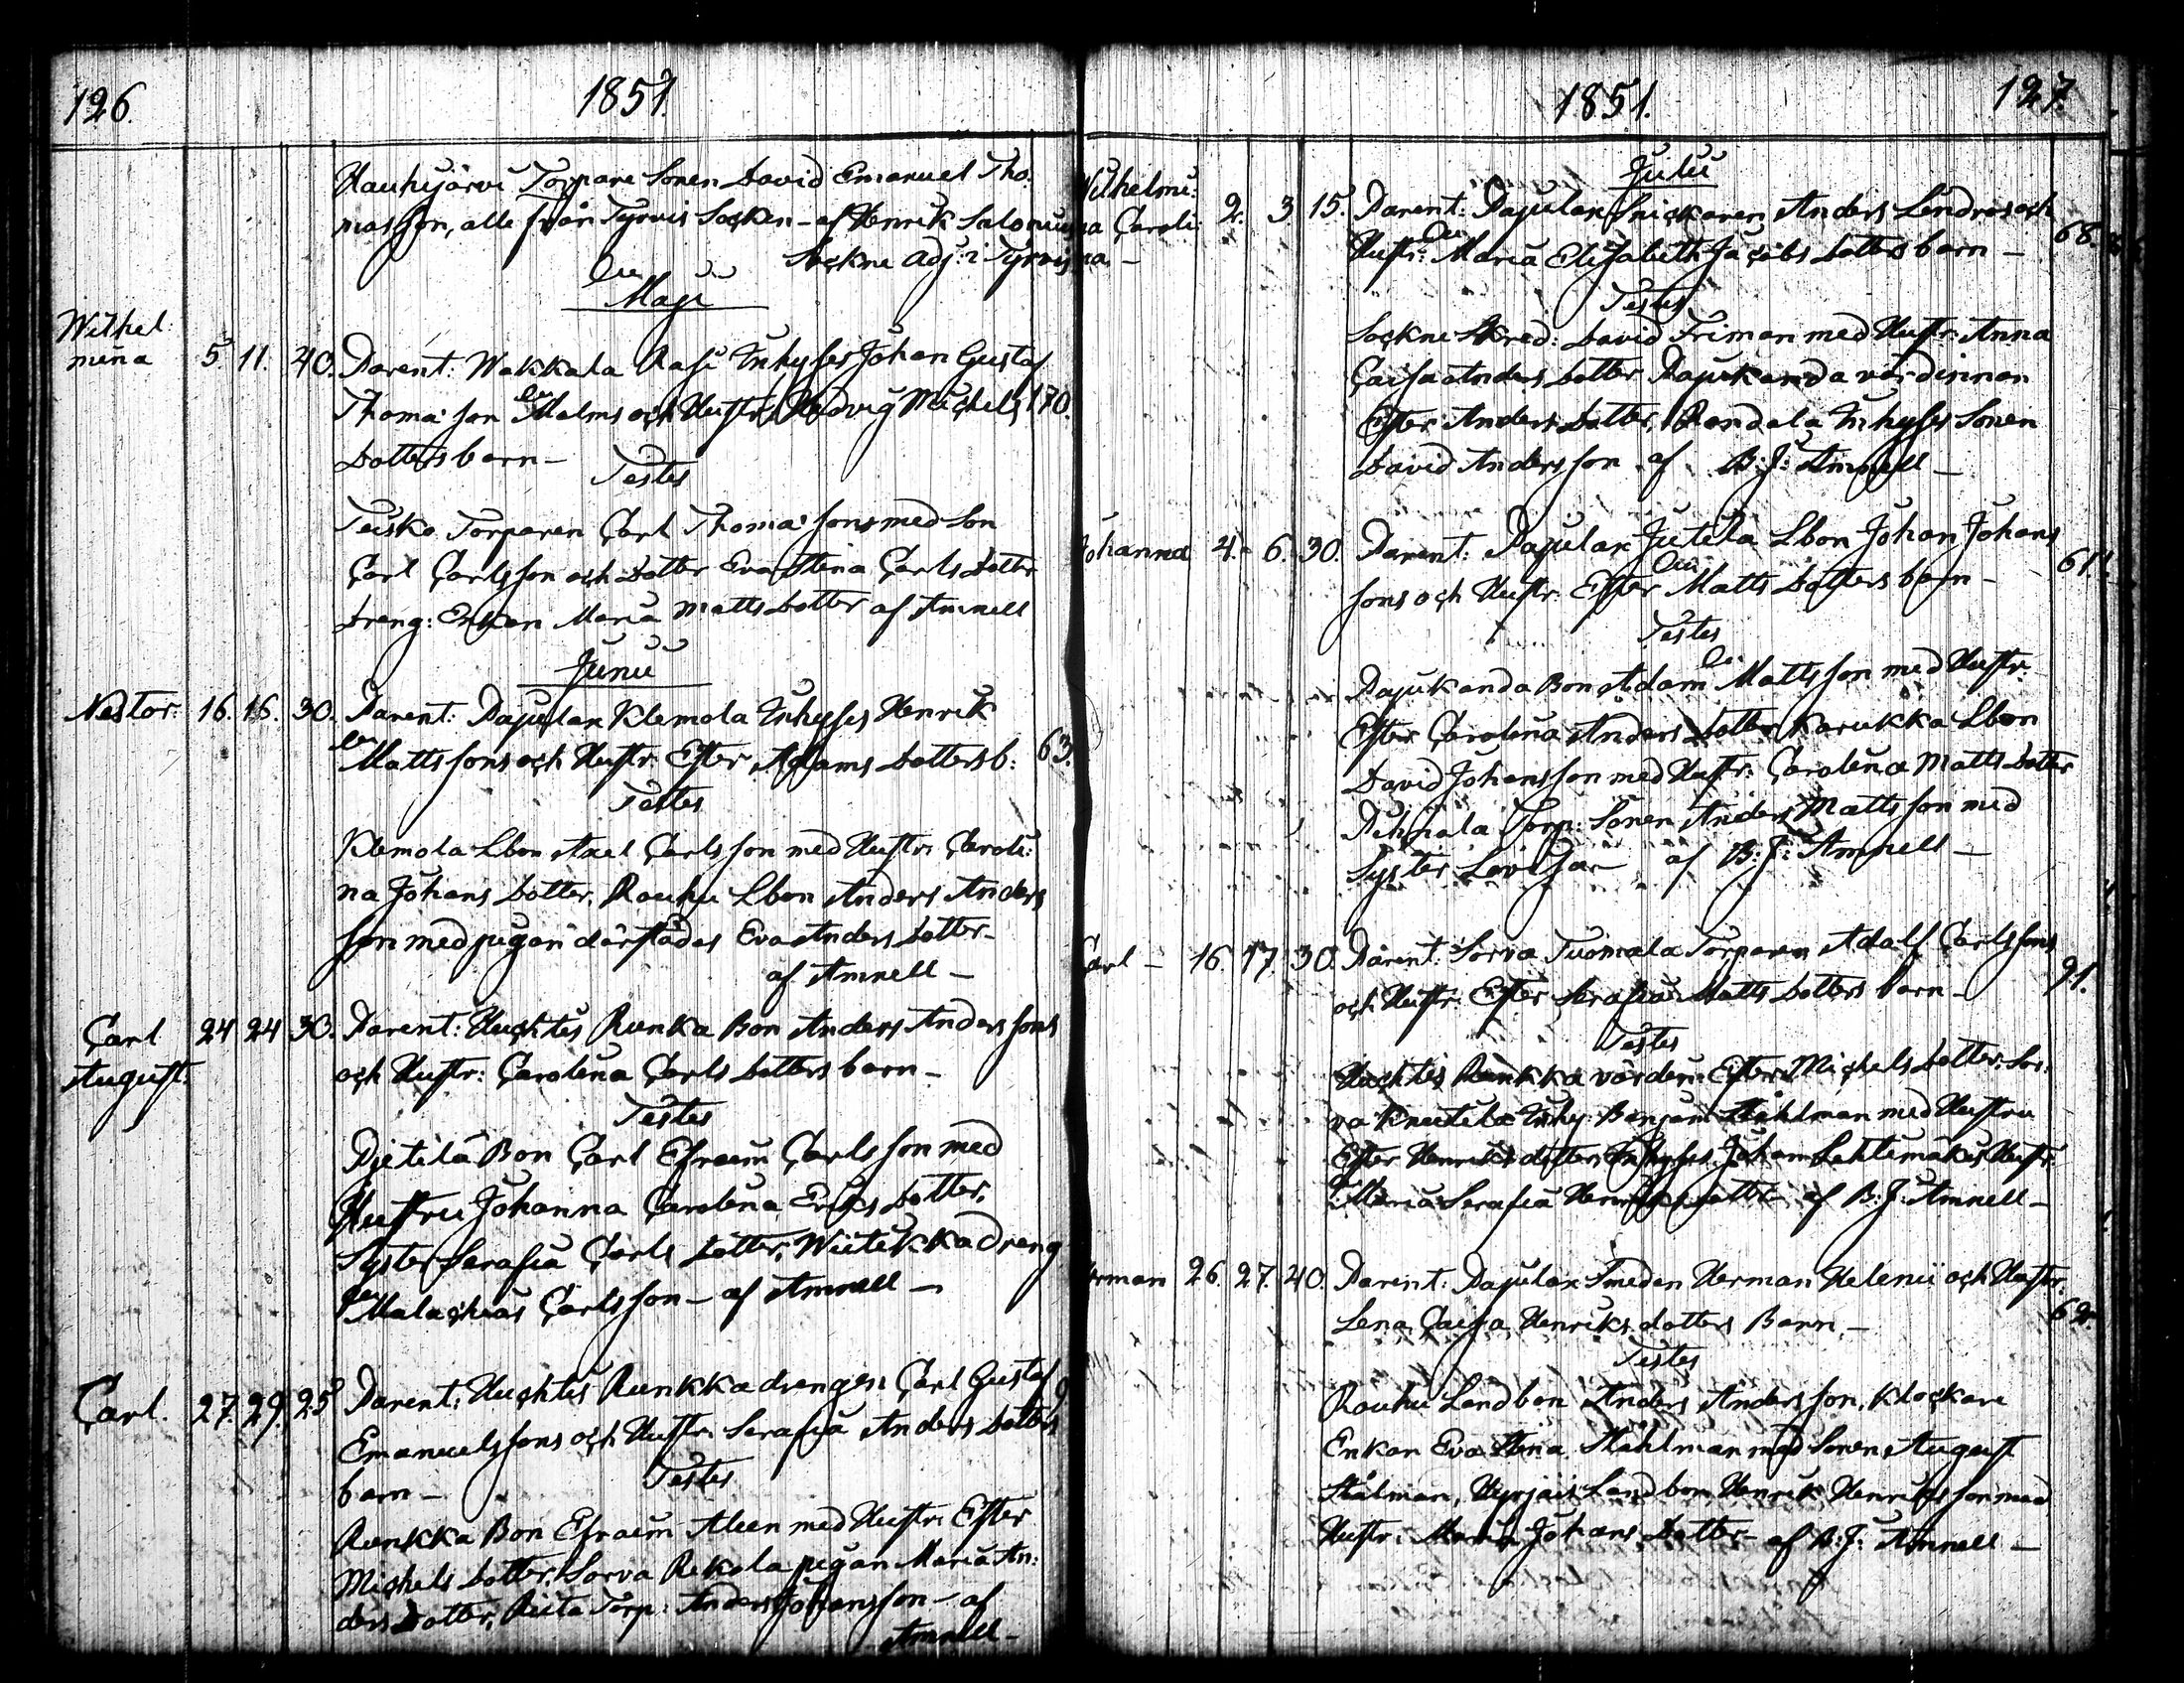 126.
1851.
Hauhijärvi Torpare Sonen David Emanuel Tho-
masson, alle från Tyrvis Socken - af Henrik Salonius
Sockne Adj: i Tyrvis
Maji
Wilhel:
mina 5. 11. 40. Parent: Wakkala Rasi Inhyses Johan Gustaf
Thomasson Malms och Hustr. Hedvig Michels 170.
Dotters barn -
Testes
Teisko Torparen Carl Thomasons med Son
Carl Carlsson och Dotter Eva Stina Carls Dotter
Dreng: Enkan Maria Matts Dotter af Amnell
Junii
Nestor: 16. 16. 30. Parent: Pajulax Klemola Inhyses Henrik
Mattssons och Hustr. Ester Adams Dotters b: 63.
Testes
Klemola Lbon Axel Carlsson med Hustr. Caroli:
na Johans Dotter, Rouhu Lbon Anders Anders
son med pigan därstädes Eva Anders Dotter -
af Amnell -
Carl 24 24 30. Parent: Huchtis Runka Bon Anders Anderssons
August. och Hustr: Carolina Carls Dotters barn -
Testes
Pietilä Bon Carl Efraim Carlsson med
Hustru Johanna Carolina Eriks Dotter,
Syster Serafia Carls Dotter, Wiitikka Dreng
Malachias Carlsson - af Amnell -
Carl. 27. 29. 25 Parent: Huchtis Runkka drengen Carl Gustaf 9
Emanuelssons och Hustr. Serafia Anders Dotters
barn -
Testes
Runkka Bon Efraim Alen med Hustr. Ester
Michels Dotter, Sorva Rekola pigan Maria An:
ders Dotter, Ruta Torp: Anders Johansson - af
Amnell -
1851.
127.
Julii
Wilhelmi: 2. 3. 15. Parent: Pajulax Snickaren Anders Lendros och
na Caroli Hustr: Maria Elisabeth Jacobs Dotters barn - 68.
na. -
Testes
Sockne Skred: David Friman med Hustr: Anna
Caisa Anders Dotter Pajukanda värdinnan
Ester Anders Dotter, Rondala Inhyses Sonen
David Andersson af B: J: Amnell -
Johanna 4. 6. 30. Parent: Pajulax Jutila Lbon Johan Johans
sons och Hustr. Ester Matts Dotters barn - 61.
Testes
Pajukanda Bon Adam Mattsson med Hustr.
Ester Carolina Anders Dotter Karukka Lbon
David Johansson med Hustr: Carolina Matts Dotter
Torp: Sonen Anders Mattsson med
Syster Lovisa - af B: J: Amnell -
Carl - 16. 17. 30. Parent: Sorva Tuomala Torparen Adolf Carlssons
och Hustr. Ester Serafia Matts Dotters barn - 91.
Testes
Huchtis Runkka värdin: Ester Michels Dotter, Sor:
va Knutila Inhy: Benjam: Ståhlman med Hustru
Ester Henriks dotter, Inhyses Johan Lehtimäkis Hustr.
Maria Serafia Henriks dotter af B: J: Amnell -
erman 26. 27. 40. Parent: Pajulax Smeden Herman Helenii och Hustr.
Lena Caisa Henriks dotters Barn. - 62.
Testes
Rouhu Landbon Anders Andersson, Klockare
Enkan Eva Stina Ståhlman med Sonen August
Stålman, Hyrjais Landbon Henrik Henriksson med
Hustr. Maria Johans Dotter - af B: J: Amnell -